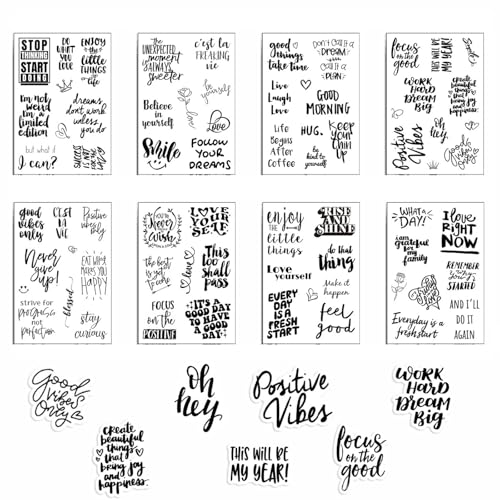 STOP
THINKING
START
DOING
DO
WHAT
YOU
LOVE
ENJOY
the
little
THINGS
in
LIFE
I'm not
weird
I'm a
limited
edition
dreams
don't work
unless
you do
but what if
I can?
SUCCESS
IS NOT
FOR THE
THE
UNEXPECTED
moment
is ALWAYS
sweeter
c'est la
FREAKING
vie
Believe
in
yourself
be
yourself
Love
Smile
FOLLOW
YOUR
DREAMS
good
things
take time
Don't call it a
dream
call it a
PLAN
Live
Laugh
Love
GOOD
MORNING
Life
Begins
After
Coffee
HUG.
be
kind to
yourself
Keep
your
Chin
UP
focus
on the
good
THIS WILL BE
MY YEAR!
WORK
HARD
DREAM
BIG
create
beautiful
things
that
bring joy and
happiness.
oh
hey
Positive
Vibes
Good
Vibes
Only
good
vibes
only
C'EST
LA
VIE
Positive
vibes
only
Never
give
up!
EAT WHAT
MAKES YOU
HAPPY
blessed
strive for
progress
not
perfection
stay
curious
YOU'LL
Never
Wish
LOVE
YOUR
SELF
the best
is yet
to come
love
This
too
shall
pass
FOCUS
ON THE
POSITIVE
IT'S A
GOOD DAY
TO HAVE A
GOOD DAY
enjoy
the
little
things
RISE
AND
SHINE
Love
yourself
do that
thing
EVERY
DAY IS
A FRESH
START
Make it
happen
feel
good
WHAT A
DAY!
I
LOVE
RIGHT
NOW
i am
grateful
for my
family
REMEMBER
WHY YOU
STARTED
Everyday is a
fresh start
AND I'LL
DO IT
AGAIN
Good
Vibes
Only
oh
hey
Positive
Vibes
WORK
HARD
DREAM
BIG
create
beautiful
things
that
bring joy
and
happiness.
THIS WILL BE
MY YEAR!
focus
on the
good